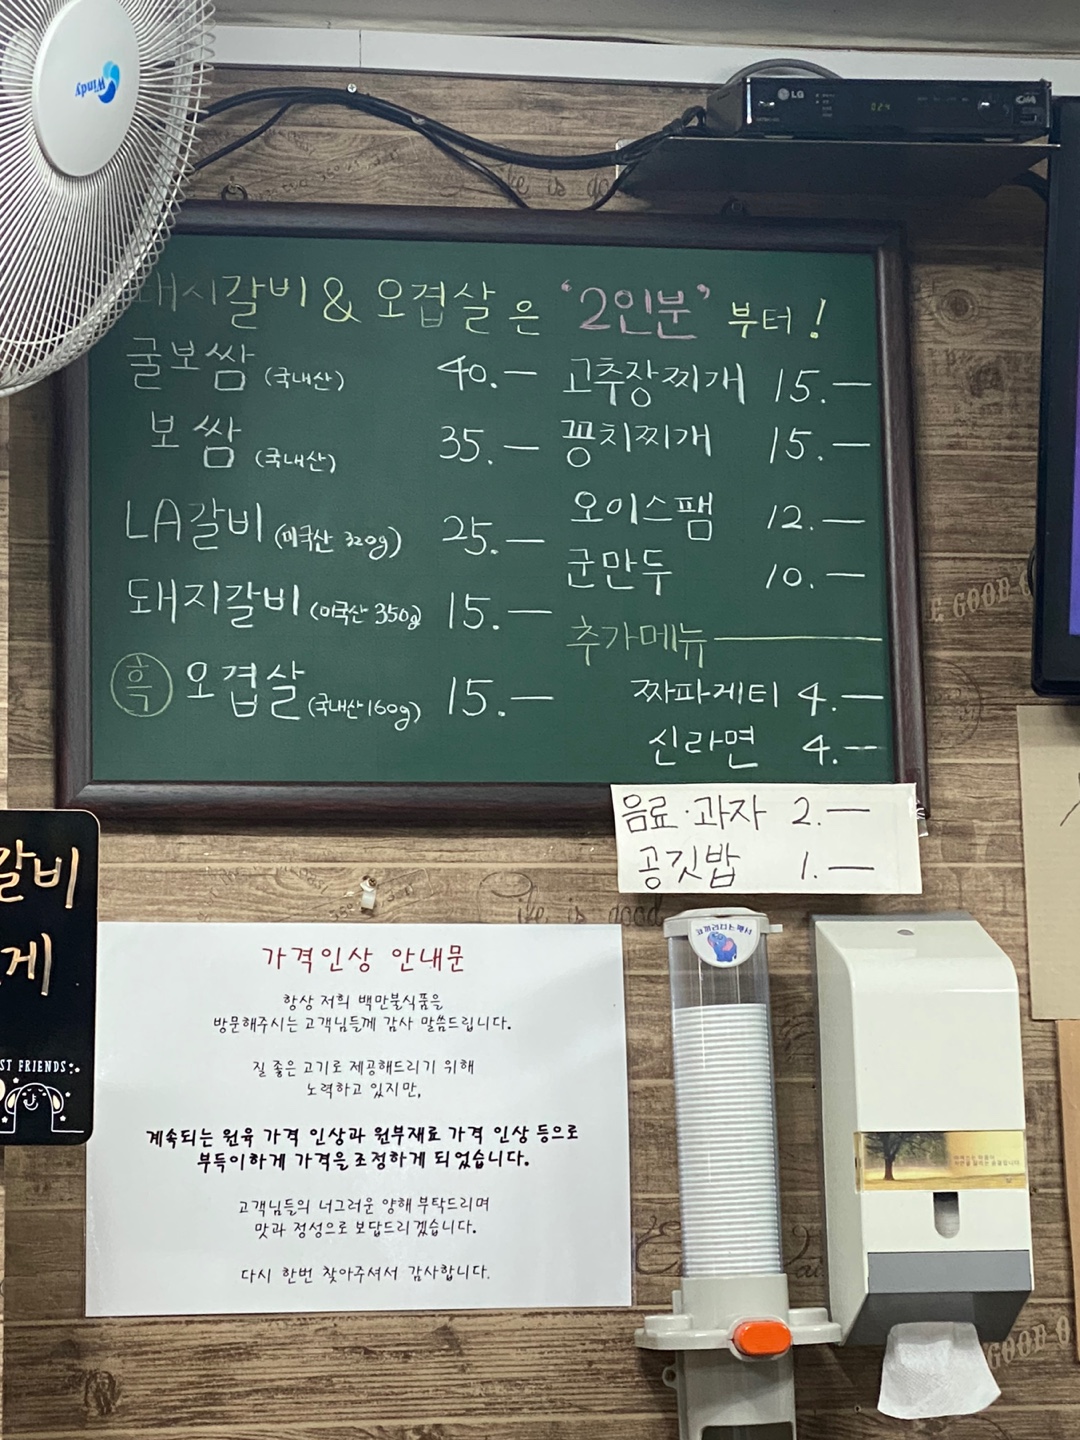 Windy
LG
돼지갈비 & 오겹살은 '2인분' 부터!
굴보쌈 (국내산) 40.—
보쌈 (국내산) 35.—
LA갈비 (미국산 320g) 25.—
돼지갈비 (미국산 350g) 15.—
흑 오겹살 (국내산 160g) 15.—
고추장찌개 15.—
꽁치찌개 15.—
오이스팸 12.—
군만두 10.—
추가메뉴
짜파게티 4.—
신라면 4.—
음료·과자 2.—
공깃밥 1.—
갈비
게
ST FRIENDS
가격인상 안내문
항상 저희 백만불식품을
방문해주시는 고객님들께 감사 말씀드립니다.
질 좋은 고기로 제공해드리기 위해
노력하고 있지만,
계속되는 원육 가격 인상과 원부재료 가격 인상 등으로
부득이하게 가격을 조정하게 되었습니다.
고객님들의 너그러운 양해 부탁드리며
맛과 정성으로 보답드리겠습니다.
다시 한번 찾아주셔서 감사합니다.
E GOOD
life is good
GOOD